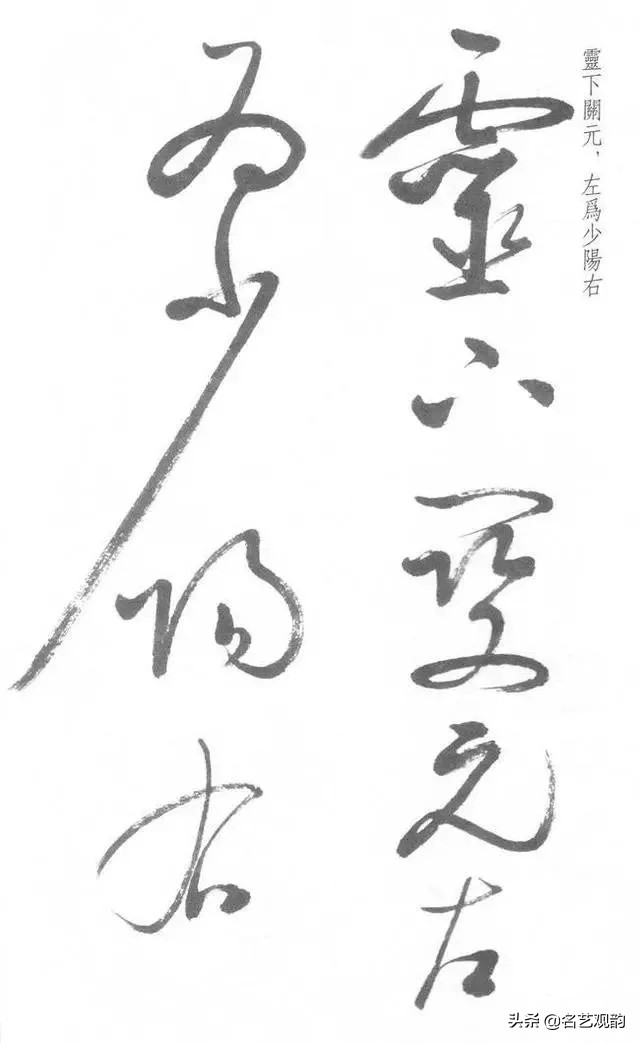 靈下關元，左爲少陽右
靈下關元左
爲少陽右
头条 @名艺观韵